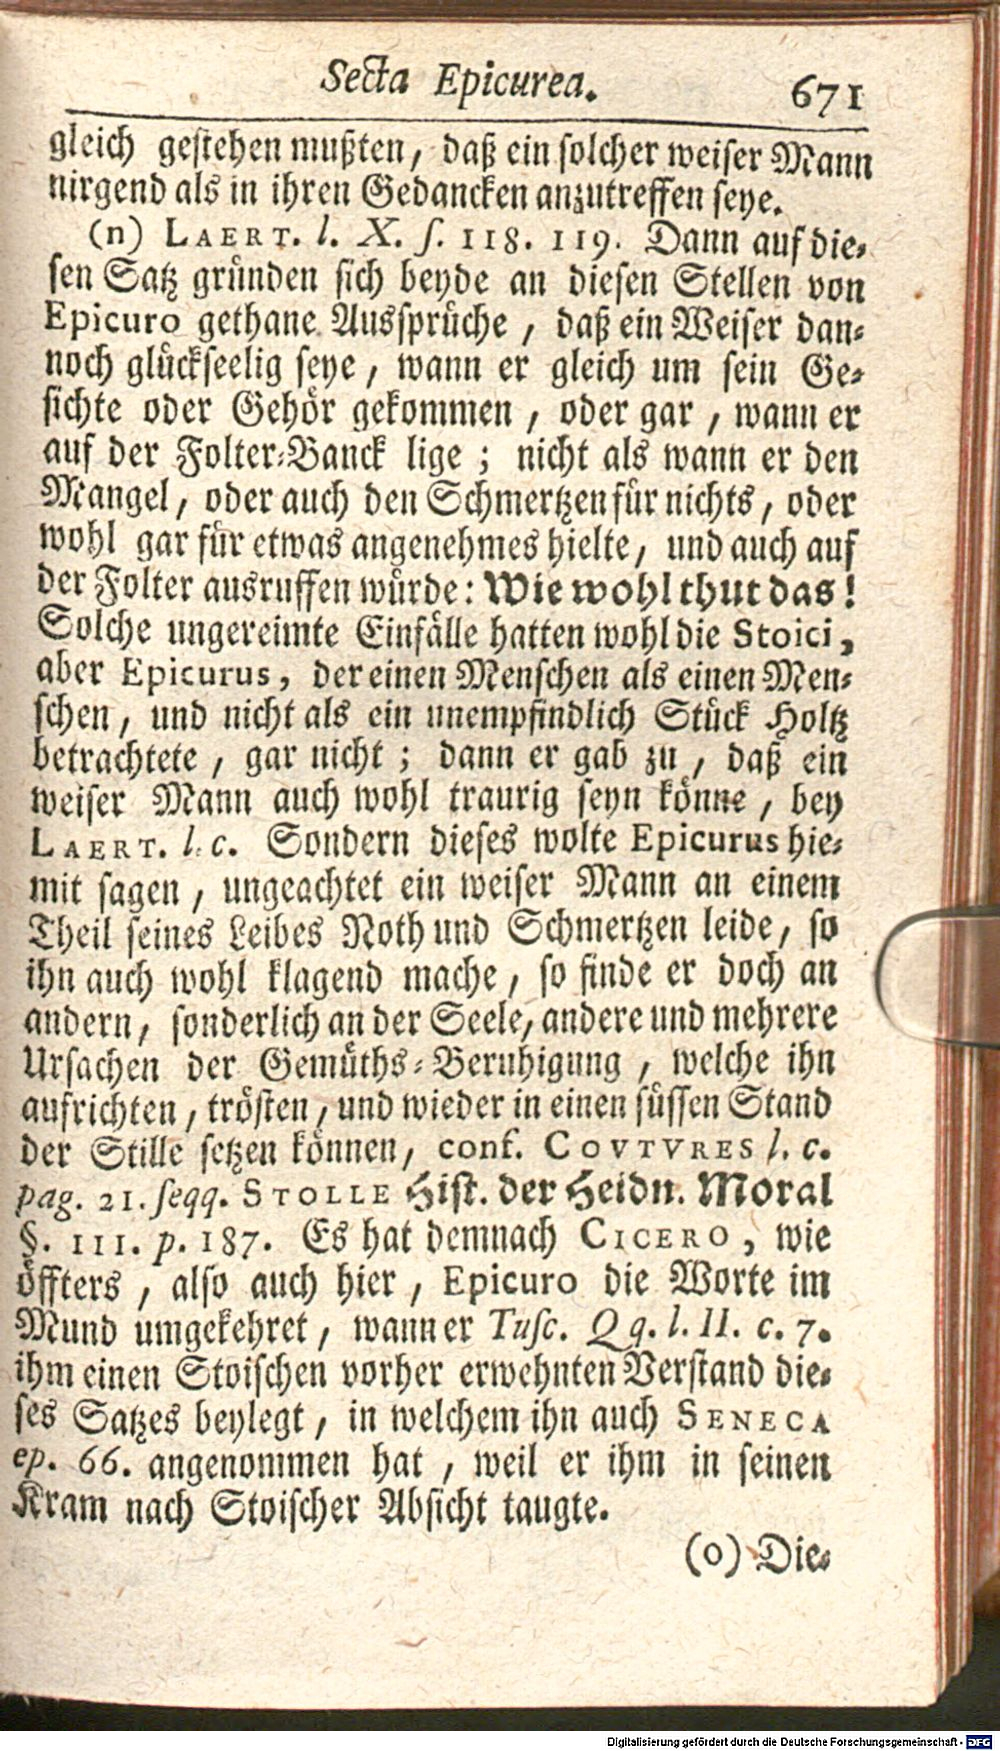 Secta Epicurea. 671
gleich gestehen mußten, daß ein solcher weiser Mann
nirgend als in ihren Gedancken anzutreffen seye.
(n) LAERT. l. X. ſ. 118. 119. Dann auf die-
sen Satz gründen sich beyde an diesen Stellen von
Epicuro gethane Aussprüche, daß ein Weiser dan-
noch glückseelig seye, wann er gleich um sein Ge-
sichte oder Gehör gekommen, oder gar, wann er
auf der Folter-Banck lige; nicht als wann er den
Mangel, oder auch den Schmertzen für nichts, oder
wohl gar für etwas angenehmes hielte, und auch auf
der Folter ausruffen würde: Wie wohl thut das!
Solche ungereimte Einfälle hatten wohl die Stoici,
aber Epicurus, der einen Menschen als einen Men-
schen, und nicht als ein unempfindlich Stück Holtz
betrachtete, gar nicht; dann er gab zu, daß ein
weiser Mann auch wohl traurig seyn könne, bey
LAERT. l. c. Sondern dieses wolte Epicurus hie-
mit sagen, ungeachtet ein weiser Mann an einem
Theil seines Leibes Noth und Schmertzen leide, so
ihn auch wohl klagend mache, so finde er doch an
andern, sonderlich an der Seele, andere und mehrere
Ursachen der Gemüths-Beruhigung, welche ihn
aufrichten, trösten, und wieder in einen süssen Stand
der Stille setzen können, conf. COVTVRES l. c.
pag. 21. ſeqq. STOLLE Hist. der Heidn. Moral
§. III. p. 187. Es hat demnach CICERO, wie
öffters, also auch hier, Epicuro die Worte im
Mund umgekehret, wann er Tuſc. Qq. l. II. c. 7.
ihm einen Stoischen vorher erwehnten Verstand die-
ses Satzes beylegt, in welchem ihn auch SENECA
ep. 66. angenommen hat, weil er ihm in seinen
Kram nach Stoischer Absicht taugte.
(o) Die-
Digitalisierung gefördert durch die Deutsche Forschungsgemeinschaft - DFG